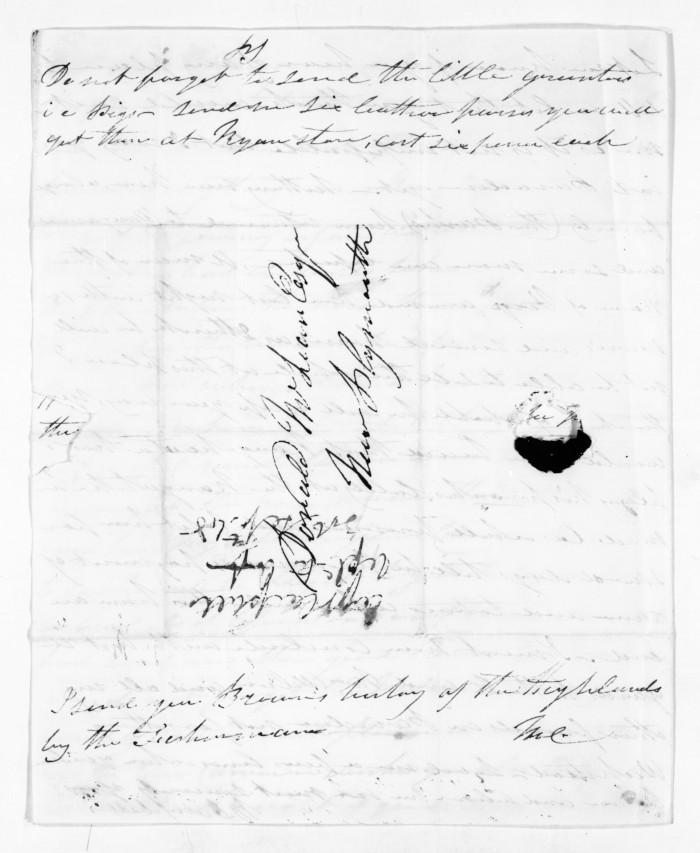 PS
Do not forget to send the little grunters
i e Pigs - send me six leather purses you will
get them at Ryan store, cost six pence each
Donald McLean Esqr
New Plymouth
the
I send you Browns history of the Highlands
by the Fisherman